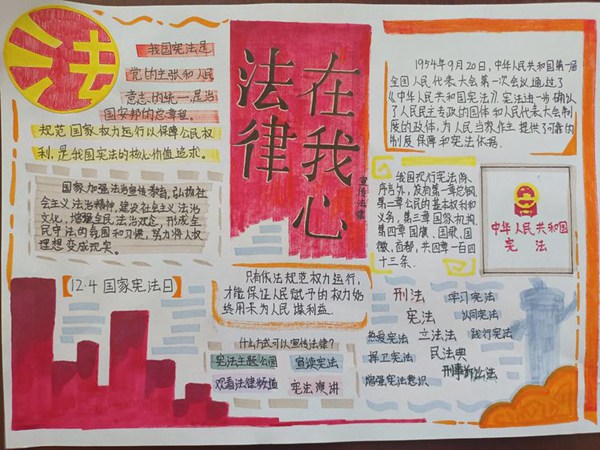 法
我国宪法是
党的主张和人民
意志的统一,是治
国安邦的总章程。
规范国家权力运行以保障公民权
利,是我国宪法的核心价值追求。
国家加强法治宣传教育,弘扬社
会主义法治精神,建设社会主义法治
文化,增强全民法治观念,形成全
民守法的氛围和习惯,努力将人权
理想变成现实。
12·4国家宪法日
法律
在我心
宣传法律
只有依法规范权力运行,
才能保证人民赋予的权力始
终用来为人民谋利益。
什么方式可以宣传法律?
宪法主题公园
宣读宪法
观看法律频道
宪法演讲
1954年9月20日,中华人民共和国第一届
全国人民代表大会第一次会议通过了
《中华人民共和国宪法》。宪法进一步确认
了人民民主专政的国体和人民代表大会制
度的政体,为人民当家作主提供了可靠的
制度保障和宪法依据。
我国现行宪法除
序言外,发有第一章总纲
第二章公民的基本权利和
义务,第三章国家机构
第四章国旗、国歌、国
徽、首都,共四章一百四
十三条.
中华人民共和国
宪法
刑法
学习宪法
宪法
认同宪法
热爱宪法
立法法
践行宪法
捍卫宪法
民法典
刑事诉讼法
增强宪法意识